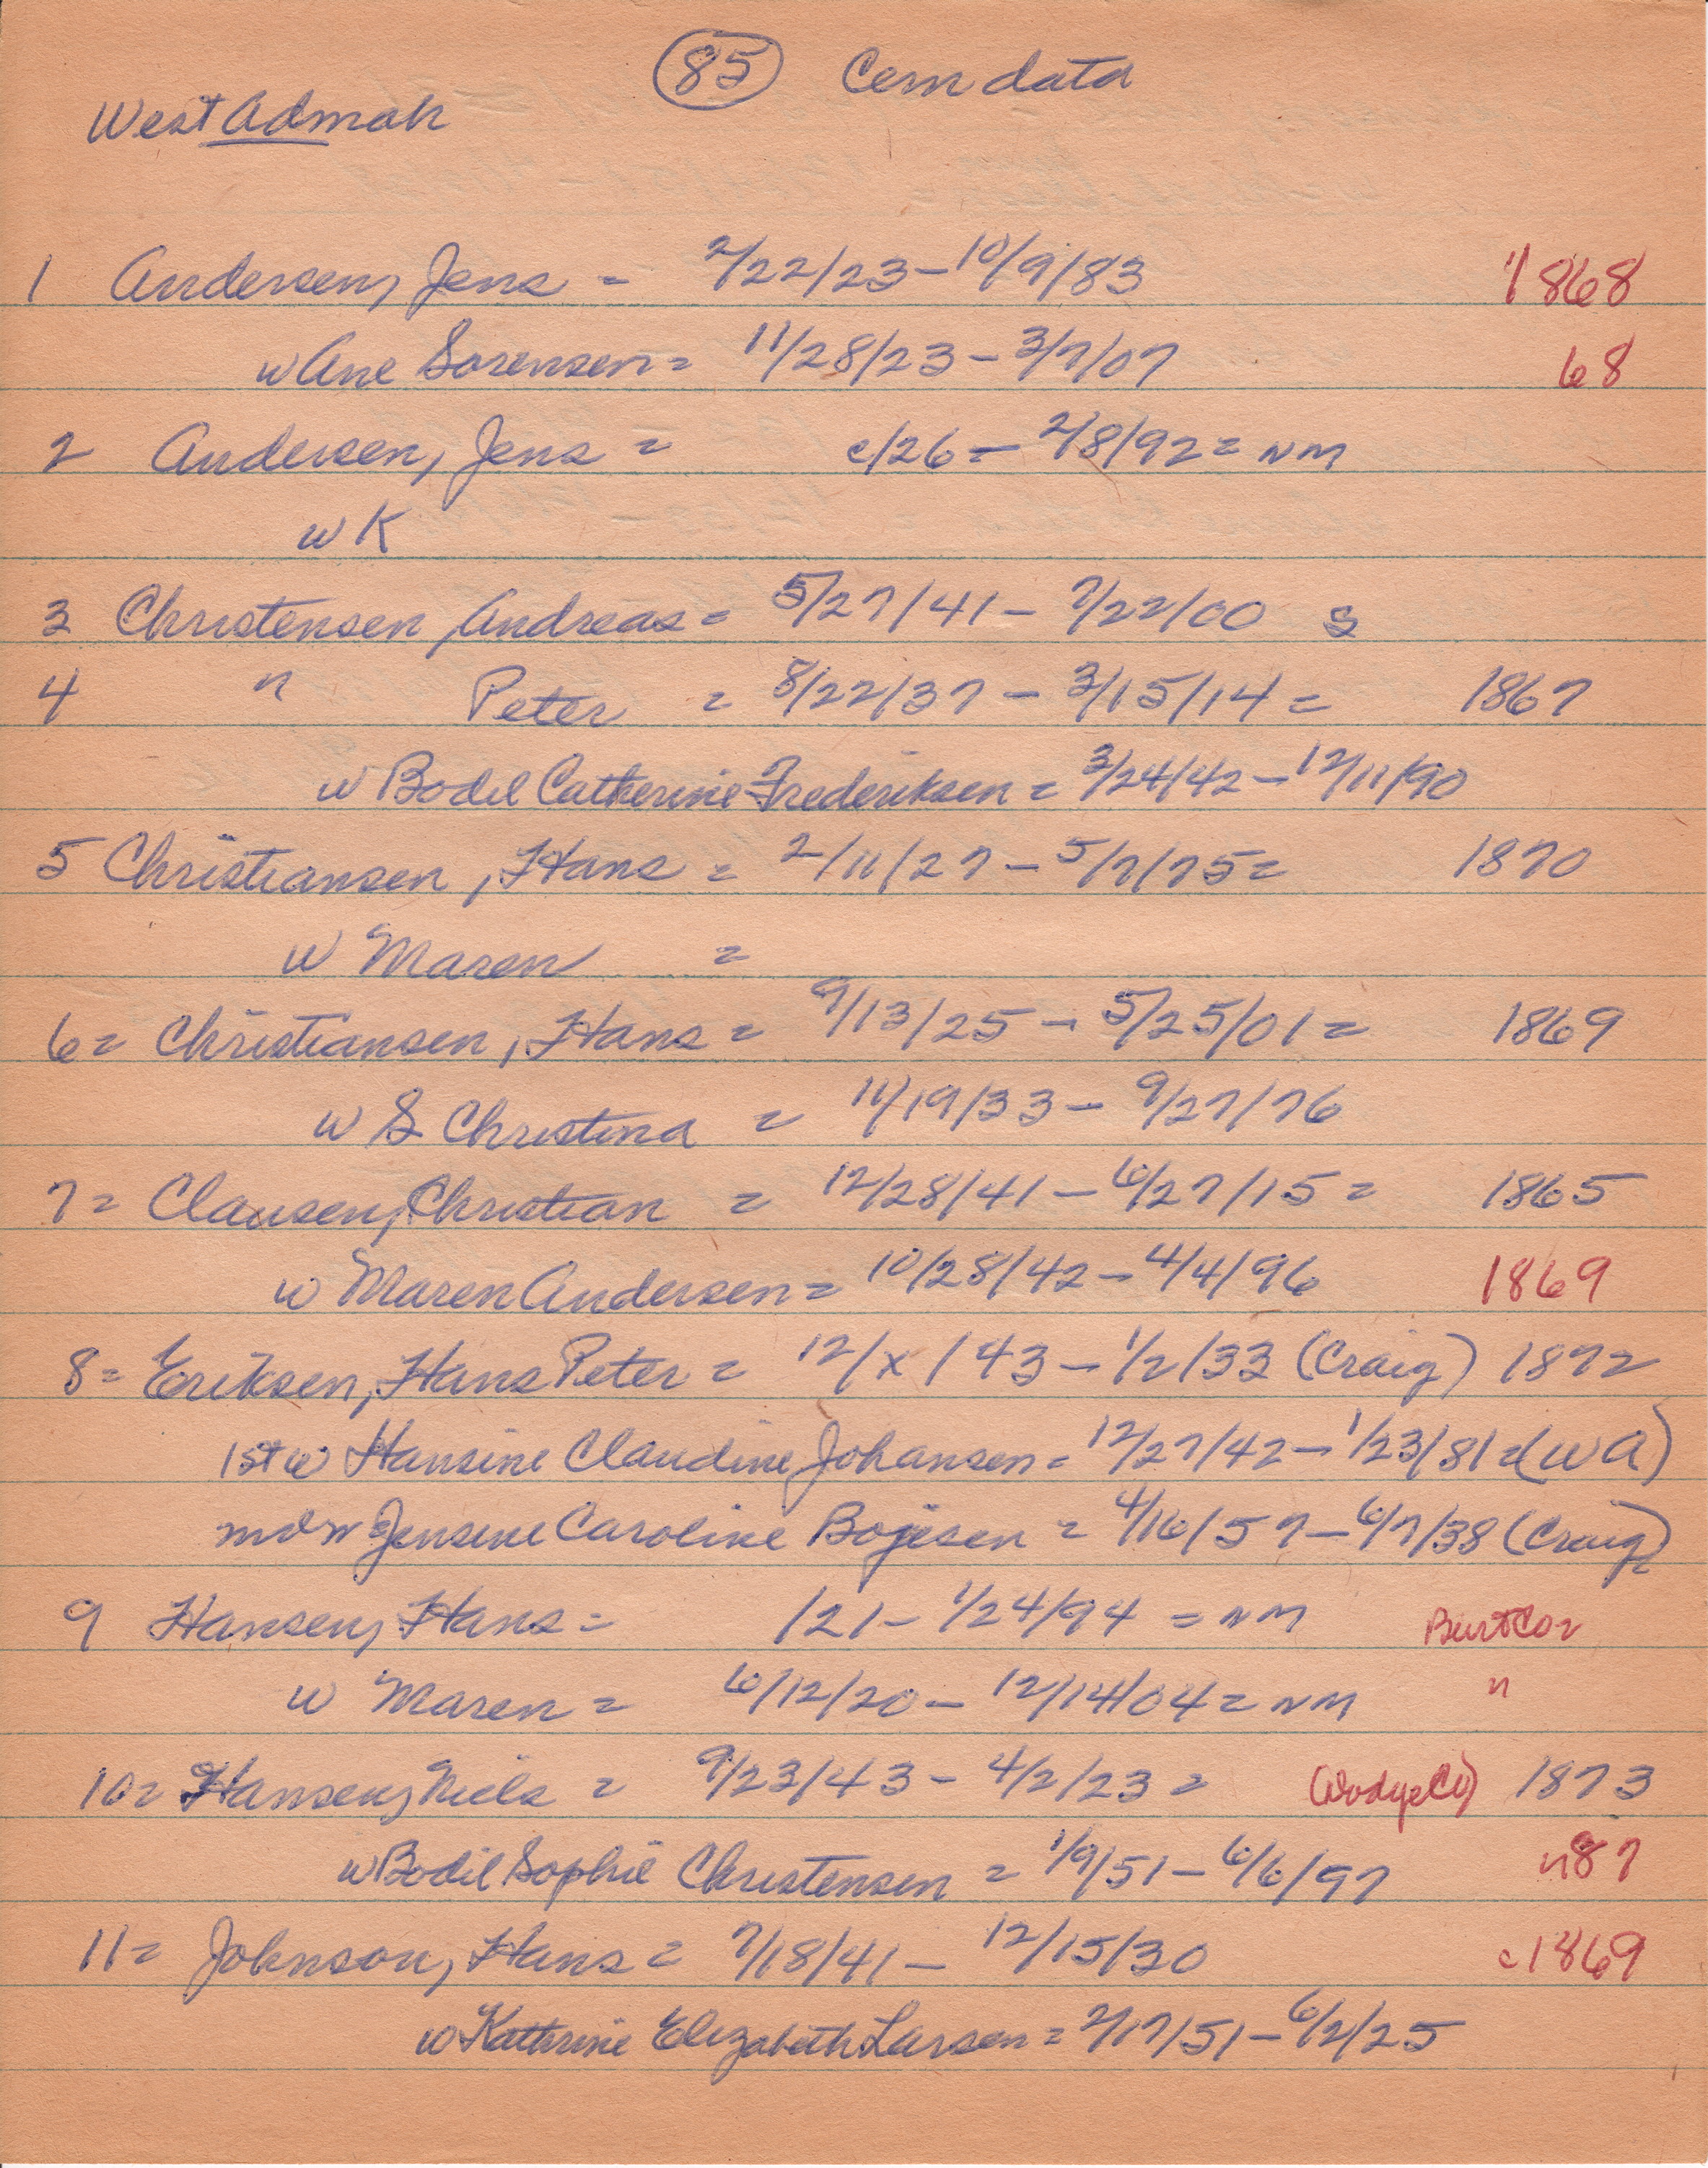 85 Cem data
West Admah
1 Andersen, Jens = 2/22/23 - 10/9/83 1868
w Ane Sorensen = 11/28/23 - 3/7/07 68
2 Andersen, Jens = c/26 = 2/8/92 = NM
w K
3 Christensen, Andreas = 5/27/41 - 7/22/00 S
4 " Peter = 8/22/37 - 3/15/14 = 1867
w Bodil Catherine Frederiksen = 3/24/42 - 12/11/90
5 Christiansen, Hans = 2/11/27 - 5/7/75 = 1870
w Maren =
6 = Christiansen, Hans = 9/13/25 - 5/25/01 = 1869
w S Christina = 11/19/33 - 9/27/76
7 = Clausen, Christian = 12/28/41 - 6/27/15 = 1865
w Maren Andersen = 10/28/42 - 4/4/96 1869
8 = Eriksen, Hans Peter = 12/x/43 - 1/2/33 (Craig) 1872
1st w Hansine Claudine Johansen = 12/27/42 - 1/23/81 = (WA)
Jensine Caroline Bojesen = 4/16/57 - 6/7/38 (Craig)
9 Hansen, Hans = /21 - 1/24/94 = NM Burt Co =
w Maren = 6/12/20 - 12/14/04 = NM "
10 = Hansen, Niels = 9/23/43 - 4/2/23 = (Dodge Co) 1873
w Bodil Sophie Christensen = 1/9/51 - 6/6/97 " 87
11 = Johnson, Hans = 7/18/41 - 12/15/30 c1869
w Kathrine Elizabeth Larsen = 2/17/51 - 6/2/25